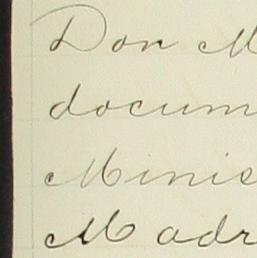 Don M
docum
Minis
Madr